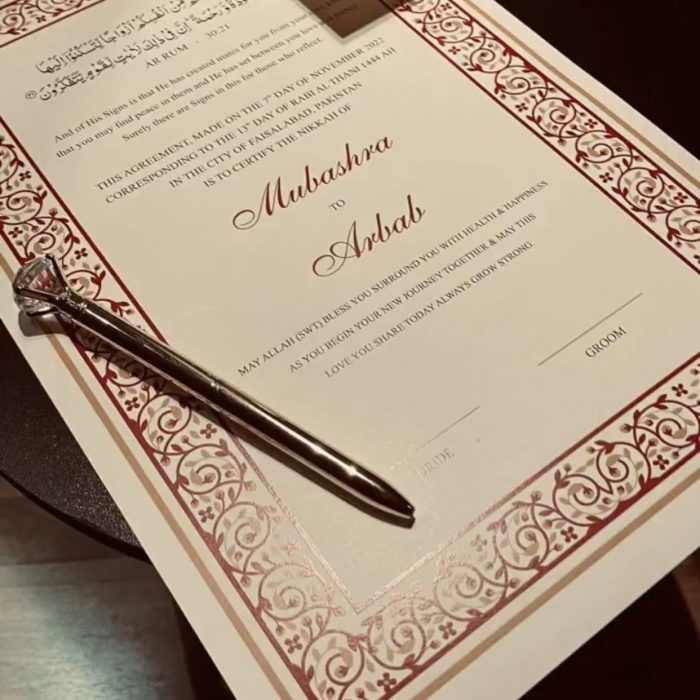 مِّنْ أَنفُسِكُمْ أَزْوَاجًا لِّتَسْكُنُوا إِلَيْهَا
إِنَّ فِي ذَٰلِكَ لَآيَاتٍ لِّقَوْمٍ يَتَفَكَّرُونَ
AR RUM - 30:21
And of His Signs is that He has created mates for you from your own
that you may find peace in them and He has set between you love and mercy
Surely there are Signs in this for those who reflect
THIS AGREEMENT, MADE ON THE 7th DAY OF NOVEMBER 2022
CORRESPONDING TO THE 13th DAY OF RABI AL THANI 1444 AH
IN THE CITY OF FAISALABAD, PAKISTAN
IS TO CERTIFY THE NIKKAH OF
Mubashra
TO
Arbab
MAY ALLAH (SWT) BLESS YOU SURROUND YOU WITH HEALTH & HAPPINESS
AS YOU BEGIN YOUR NEW JOURNEY TOGETHER & MAY THIS
LOVE YOU SHARE TODAY ALWAYS GROW STRONG
GROOM
BRIDE